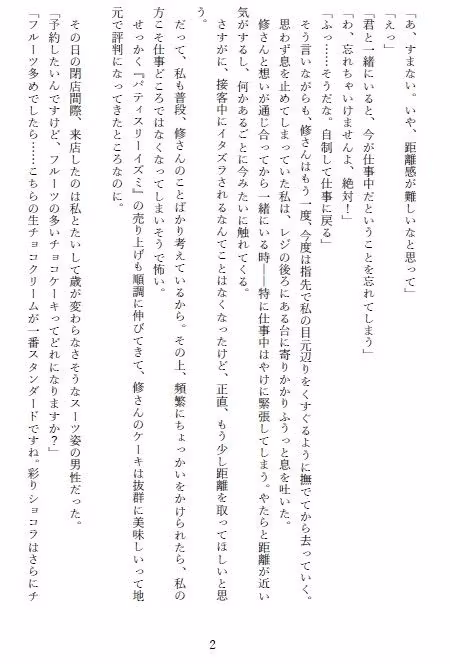 「あ、すまない。いや、距離感が難しいなと思って」
「えっ」
「君と一緒にいると、今が仕事中だということを忘れてしまう」
「わ、忘れちゃいけませんよ、絶対！」
「ふっ……そうだな。自制して仕事に戻る」
そう言いながらも、修さんはもう一度、今度は指先で私の目元辺りをくすぐるように撫でてから去っていく。
思わず息を止めてしまっていた私は、レジの後ろにある台に寄りかかりふうっと息を吐いた。
修さんと想いが通じ合ってから一緒にいる時――特に仕事中はやけに緊張してしまう。やたらと距離が近い
気がするし、何かあるごとに今みたいに触れてくる。
さすがに、接客中にイタズラされるなんてことはなくなったけど、正直、もう少し距離を取ってほしいと思
う。
だって、私も普段、修さんのことばかり考えているから。その上、頻繁にちょっかいをかけられたら、私の
方こそ仕事どころではなくなってしまいそうで怖い。
せっかく『パティスリーイズミ』の売り上げも順調に伸びてきて、修さんのケーキは抜群に美味しいって地
元で評判になってきたところなのに。
その日の閉店間際、来店したのは私とたいして歳が変わらなさそうなスーツ姿の男性だった。
「予約したいんですけど、フルーツの多いチョコケーキってどれになりますか？」
「フルーツ多めでしたら……こちらの生チョコクリームが一番スタンダードですね。彩りショコラはさらにチ
2